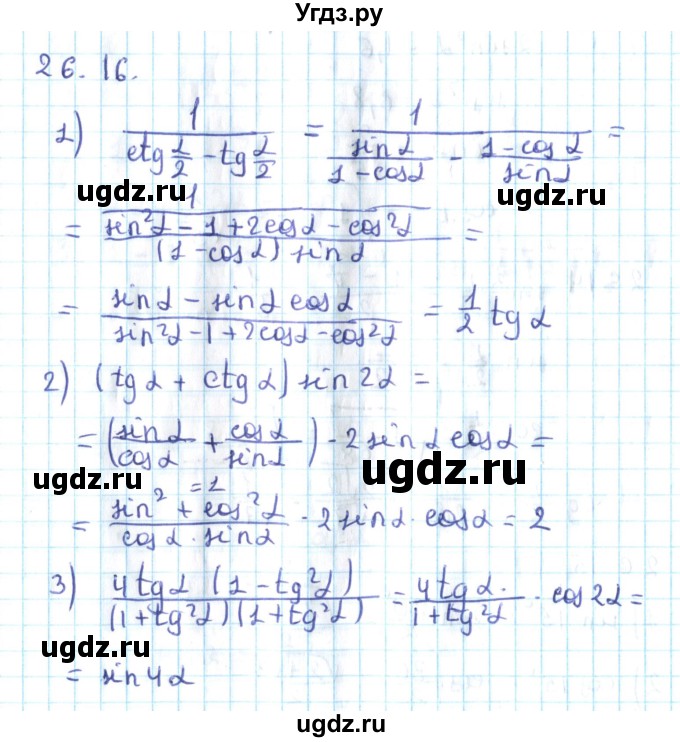 Угдз.ру
26.16.
1) 1/(ctg α/2 - tg α/2) = 1/(sin α/(1 - cos α) - (1 - cos α)/sin α) =
ugdz.ru ugdz.ru
= 1/((sin²α - 1 + 2cos α - cos²α)/((1 - cos α) sin α)) =
= (sin α - sin α cos α)/(sin²α - 1 + 2cos α - cos²α) = 1/2 tg α
2) (tg α + ctg α) sin 2α =
= (sin α/cos α + cos α/sin α) · 2 sin α cos α =
ugdz.ru ugdz.ru
= (sin² + cos²α)/(cos α · sin α) · 2 sin α · cos α = 2
= 1
3) 4tg α (1 - tg²α)/((1 + tg²α)(1 + tg²α)) = 4tg α·/(1 + tg²α) · cos 2α =
ugdz.ru
= sin 4α
ugdz.ru